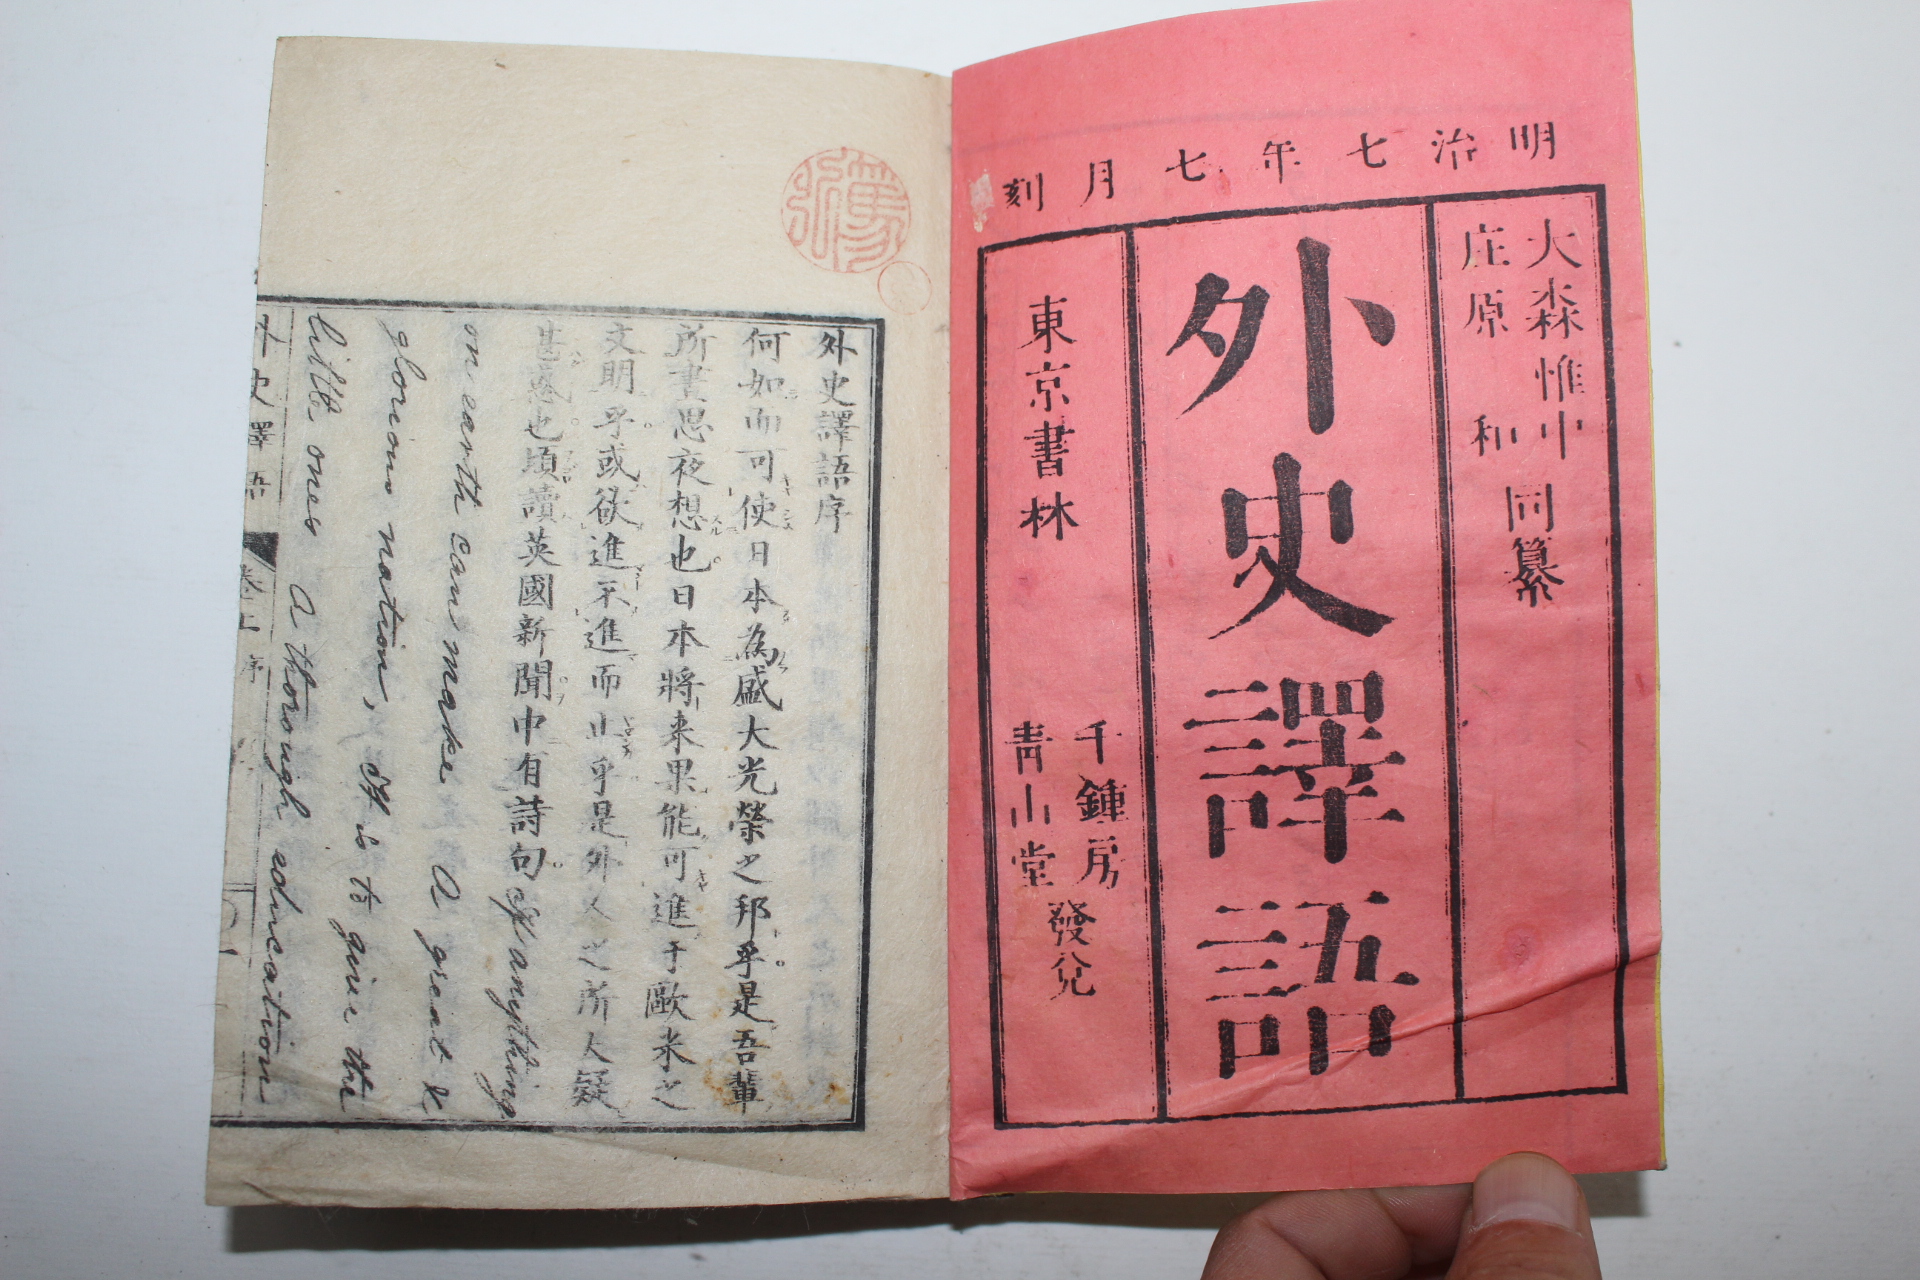 明治七年七月刻
大森惟中
庄原和
同纂
外史譯語
東京書林
千鍾房
青山堂
發兌
外史譯語序
何如而可使日本為盛大光榮之邦乎是吾輩
所晝思夜想也日本將来果能可進于歐米之
文明乎或欲進不進而止乎是外人之所大疑
甚惑也頃讀英國新聞中有詩句 If anything
on earth can make a great &
glorious nation, it is to give the
little ones a thorough education
外史譯語
卷上序